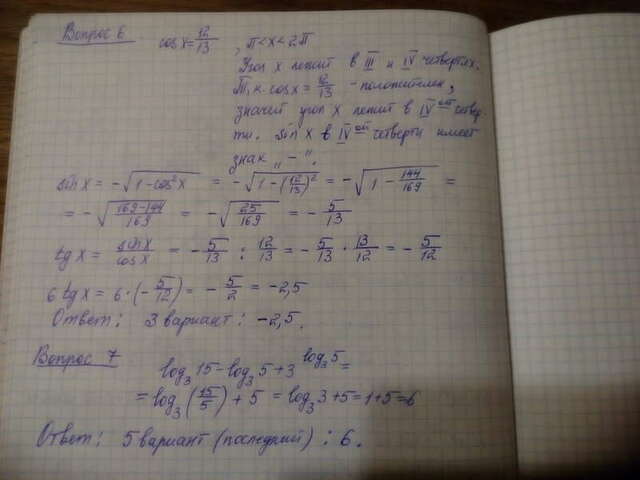 Вопрос 6 cos x = 12/13, π < x < 2π
Угол x лежит в III и IV четвертях.
Т.к. cos x = 12/13 - положителен,
значит угол x лежит в IV ой четвер
ти. sin x в IV ой четверти имеет
знак „ - “.
sin x = -√(1 - cos² x) = -√(1 - (12/13)²) = -√(1 - 144/169) =
= -√((169-144)/169) = -√(25/169) = -5/13
tg x = sin x / cos x = -5/13 : 12/13 = -5/13 · 13/12 = -5/12
6 tg x = 6 · (-5/12) = -5/2 = -2,5
Ответ: 3 вариант: -2,5.
Вопрос 7
log₃ 15 - log₃ 5 + 3^(log₃ 5) =
= log₃ (15/5) + 5 = log₃ 3 + 5 = 1 + 5 = 6
Ответ: 5 вариант (последний): 6.